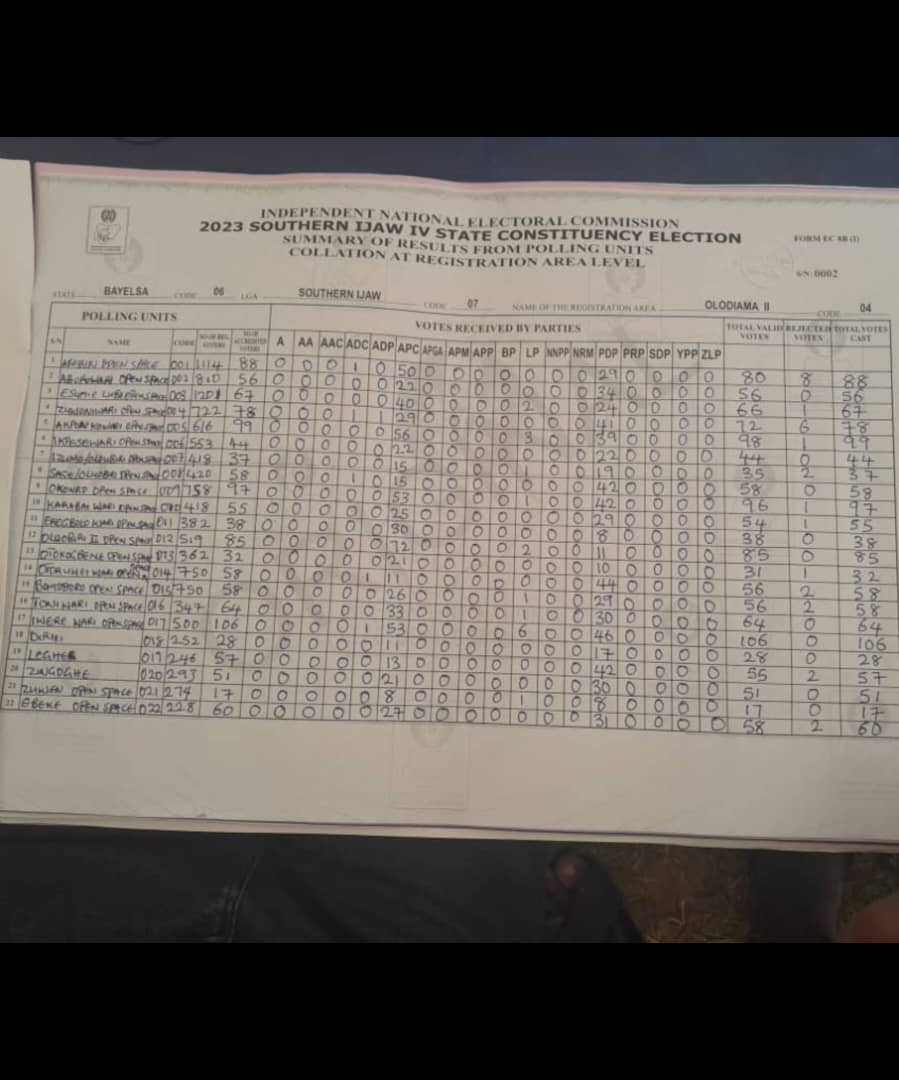 INDEPENDENT NATIONAL ELECTORAL COMMISSION
2023 SOUTHERN IJAW IV STATE CONSTITUENCY ELECTION
SUMMARY OF RESULTS FROM POLLING UNITS
COLLATION AT REGISTRATION AREA LEVEL
FORM EC 8B (I)
S/N: 0002
STATE BAYELSA CODE 06 LGA SOUTHERN IJAW CODE 07 NAME OF THE REGISTRATION AREA OLODIAMA II CODE 04
POLLING UNITS VOTES RECEIVED BY PARTIES TOTAL VALID VOTES REJECTED VOTES TOTAL VOTES CAST
S/N NAME CODE NO OF REG. VOTERS NO OF ACCREDITED VOTERS A AA AAC ADC ADP APC APGA APM APP BP LP NNPP NRM PDP PRP SDP YPP ZLP
1 OPEN SPACE 001 1114 88 0 0 0 1 0 50 0 0 0 0 0 0 0 29 0 0 0 0 80 8 88
2 OPEN SPACE 002 810 56 0 0 0 0 0 22 0 0 0 0 0 0 0 34 0 0 0 0 56 0 56
3 OPEN SPACE 003 1201 67 0 0 0 0 0 40 0 0 0 0 2 0 0 24 0 0 0 0 66 1 67
4 OPEN SPACE 004 722 78 0 0 0 1 1 29 0 0 0 0 0 0 0 41 0 0 0 0 72 6 78
5 OPEN SPACE 005 616 99 0 0 0 0 0 56 0 0 0 0 3 0 0 39 0 0 0 0 98 1 99
6 IKPESEWARI OPEN SPACE 006 553 44 0 0 0 0 0 22 0 0 0 0 0 0 0 22 0 0 0 0 44 0 44
7 OPEN SPACE 007 418 37 0 0 0 0 0 15 0 0 0 0 1 0 0 19 0 0 0 0 35 2 37
8 OPEN SPACE 008 420 58 0 0 0 1 0 15 0 0 0 0 0 0 0 42 0 0 0 0 58 0 58
9 OKOWARO OPEN SPACE 009 758 97 0 0 0 0 0 53 0 0 0 0 1 0 0 42 0 0 0 0 96 1 97
10 KARABAI WARI OPEN SPACE 010 418 55 0 0 0 0 0 25 0 0 0 0 0 0 0 29 0 0 0 0 54 1 55
11 EREGBOLO WARI OPEN SPACE 011 382 38 0 0 0 0 0 30 0 0 0 0 0 0 0 8 0 0 0 0 38 0 38
12 OLOBIRI II OPEN SPACE 012 519 85 0 0 0 0 0 72 0 0 0 0 2 0 0 11 0 0 0 0 85 0 85
13 OTOKOGBENE OPEN SPACE 013 362 32 0 0 0 0 0 21 0 0 0 0 0 0 0 10 0 0 0 0 31 1 32
14 WARI OPEN SPACE 014 750 58 0 0 0 0 1 11 0 0 0 0 0 0 0 44 0 0 0 0 56 2 58
15 OPEN SPACE 015 750 58 0 0 0 0 0 26 0 0 0 0 1 0 0 29 0 0 0 0 56 2 58
16 TONU WARI OPEN SPACE 016 347 64 0 0 0 0 0 33 0 0 0 0 1 0 0 30 0 0 0 0 64 0 64
17 INERE WARI OPEN SPACE 017 500 106 0 0 0 0 1 53 0 0 0 0 6 0 0 46 0 0 0 0 106 0 106
18 DIRIKI 018 252 28 0 0 0 0 0 11 0 0 0 0 0 0 0 17 0 0 0 0 28 0 28
19 LOGHER 019 246 57 0 0 0 0 0 13 0 0 0 0 0 0 0 42 0 0 0 0 55 2 57
20 ZINGOGHE 020 293 51 0 0 0 0 0 21 0 0 0 0 0 0 0 30 0 0 0 0 51 0 51
21 ZUWEN OPEN SPACE 021 274 17 0 0 0 0 0 8 0 0 0 0 1 0 0 8 0 0 0 0 17 0 17
22 EBEKE OPEN SPACE 022 228 60 0 0 0 0 0 27 0 0 0 0 0 0 0 31 0 0 0 0 58 2 60